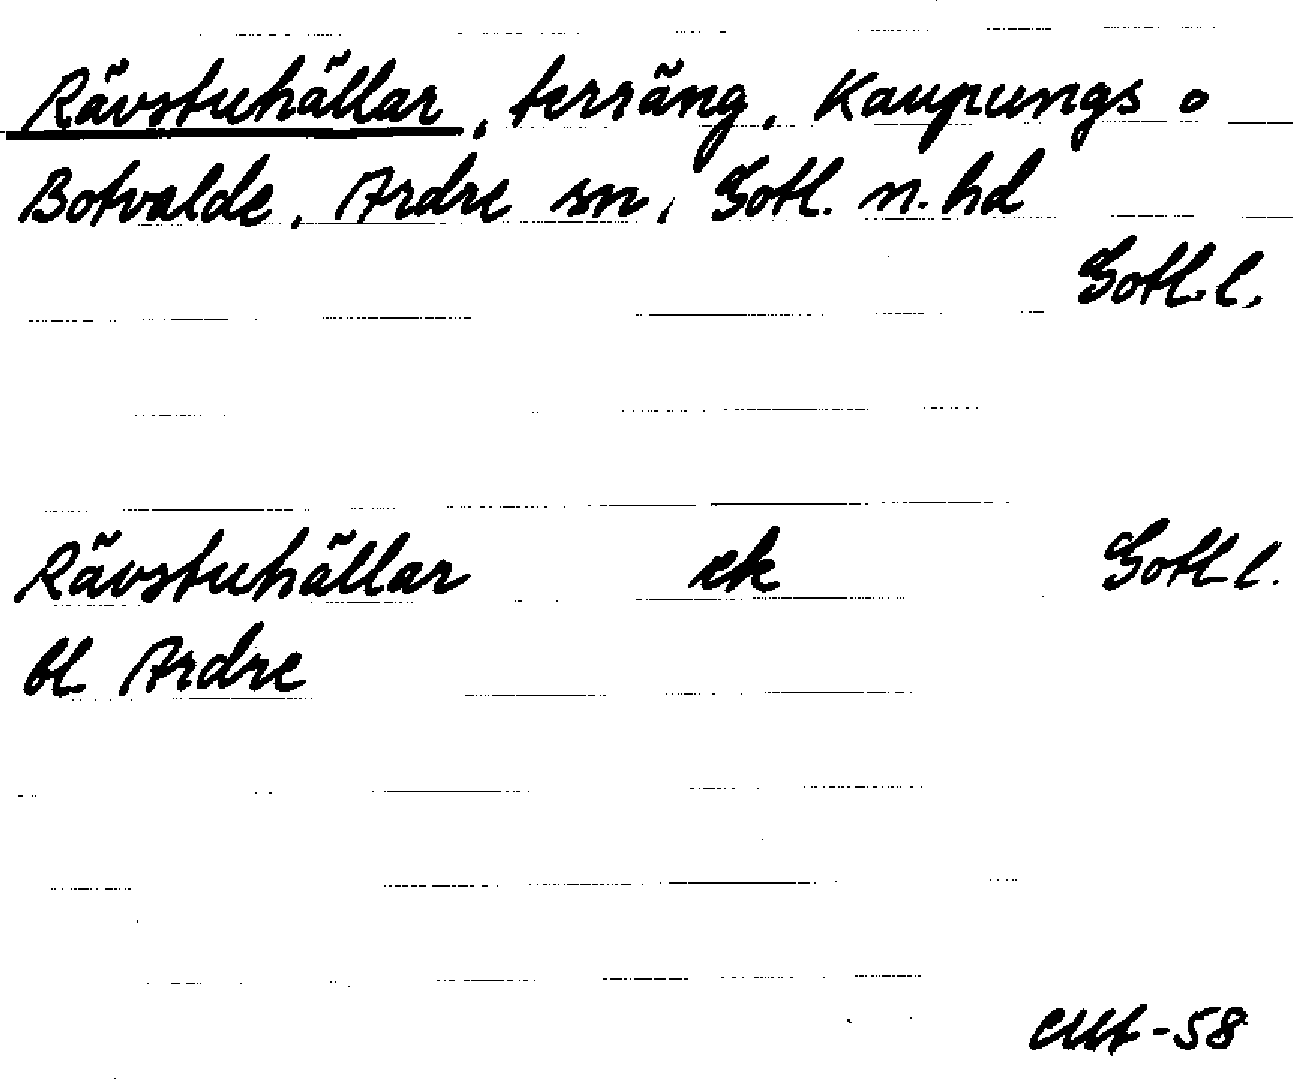 Rävstuhällar, terräng, Kaupungs o
Botvalde, Ardre sn, Gotl. n. hd
Gotl. l.
Rävstuhällar ek Gotl. l.
bl Ardre
-58